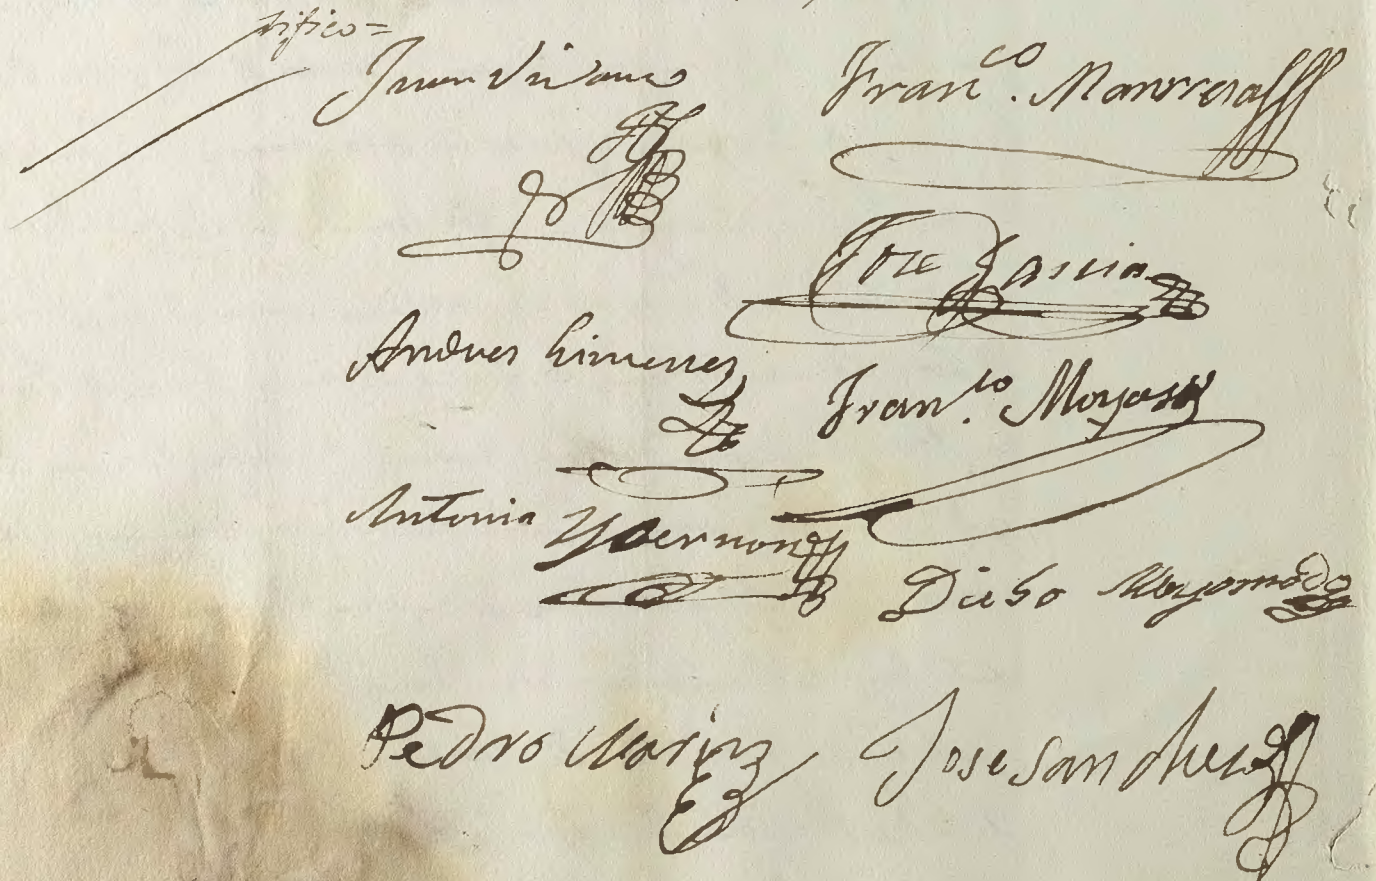 tifico=
Juan Vivanco
Fran.co Manrresa
Jose Garcia
Andres Gimenez
Fran.co Moya
Antonia Ybernon
Diebo Mayor
Pedro Marin
Jose Sanchez